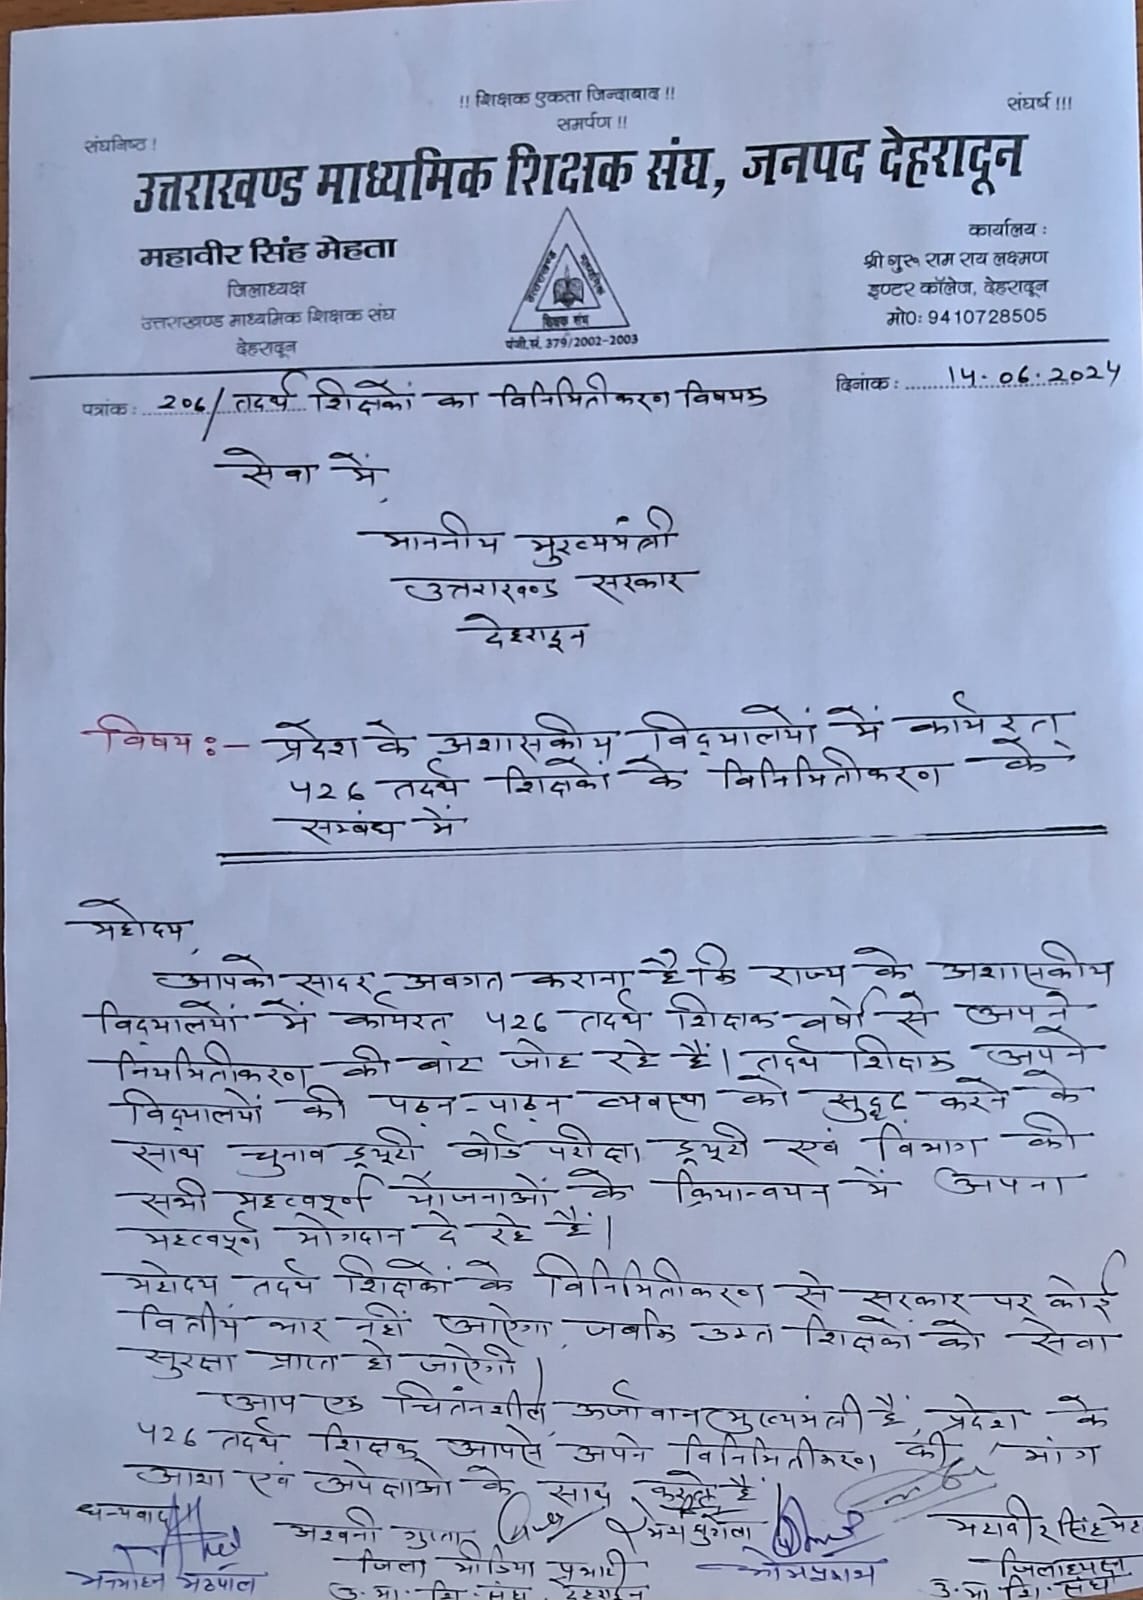 !! शिक्षक एकता जिन्दाबाद !!
संघनिष्ठ !
समर्पण !!
संघर्ष !!!
उत्तराखण्ड माध्यमिक शिक्षक संघ, जनपद देहरादून
महावीर सिंह मेहता
जिलाध्यक्ष
उत्तराखण्ड माध्यमिक शिक्षक संघ
देहरादून
उत्तराखण्ड
माध्यमिक
शिक्षक संघ
पंजी.सं. 379/2002-2003
कार्यालय :
श्री गुरू राम राय लक्ष्मण
इण्टर कॉलेज, देहरादून
मो0: 9410728505
पत्रांक: 206/ तदर्थ शिक्षकों का विनिमितीकरण विषयक
दिनांक: 14.06.2024
सेवा में,
माननीय मुख्यमंत्री
उत्तराखण्ड सरकार
देहरादून
विषय :- प्रदेश के अशासकीय विद्यालयों में कार्यरत्
426 तदर्थ शिक्षकों के विनिमितीकरण के
सम्बंध में
महोदय,
आपको सादर अवगत कराना है कि राज्य के अशासकीय
विद्यालयों में कार्यरत 426 तदर्थ शिक्षक वर्षो से अपने
नियमितीकरण की बाट जोह रहे हैं। तदर्थ शिक्षक अपने
विद्यालयों की पठन-पाठन व्यवस्था को सुदृढ़ करने के
साथ चुनाव ड्यूटी बोर्ड परीक्षा ड्यूटी एवं विभाग की
सभी महत्वपूर्ण योजनाओं के क्रियान्वयन में अपना
महत्वपूर्ण योगदान दे रहे हैं।
महोदय तदर्थ शिक्षकों के विनिमितीकरण से सरकार पर कोई
वित्तीय भार नहीं आऐगा, जबकि उक्त शिक्षकों को सेवा
सुरक्षा प्राप्त हो जाऐगी।
आप एक चिंतनशील, ऊर्जावान मुख्यमंत्री हैं, प्रदेश के
426 तदर्थ शिक्षक आपसे अपने विनिमितीकरण की मांग
आशा एवं अपेक्षाओं के साथ करते हैं
धन्यवाद
अश्वनी गुप्ता
जिला मीडिया प्रभारी
उ. मा. शि. संघ, देहरादून
महावीर सिंह मेहता
जिलाध्यक्ष
उ. मा. शि. संघ